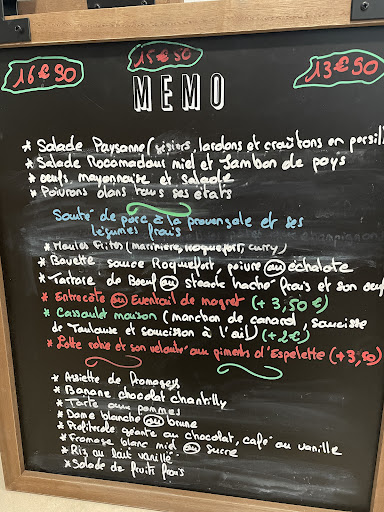 16€90
15€50
13€90
MEMO
* Salade Paysanne (gésiers, lardons et croûtons en persil
* Salade Rocamadour miel et Jambon de pays
* oeufs mayonnaise et salade
* Poivrons dans tous ses états
Sauté de porc à la provençale et ses
légumes frais
* Moules Frites (marinière, roquefort, curry)
* Bavette sauce Roquefort, poivre ou échalote
* Tartare de Boeuf ou steack haché frais et son oeuf
* Entrecôte ou Eventail de magret (+ 3,50€)
* Cassoulet maison (manchon de canard, saucisse
de Toulouse et saucisson à l'ail) (+2€)
* Lotte rôtie et son velouté aux piments d'Espelette (+3,50)
* Assiette de fromages
* Banane chocolat chantilly
* Tarte aux pommes
* Dame blanche ou brune
* Profiterole géante au chocolat, café ou vanille
* Fromage blanc miel ou sucre
* Riz au lait vanillé
* Salade de fruits frais